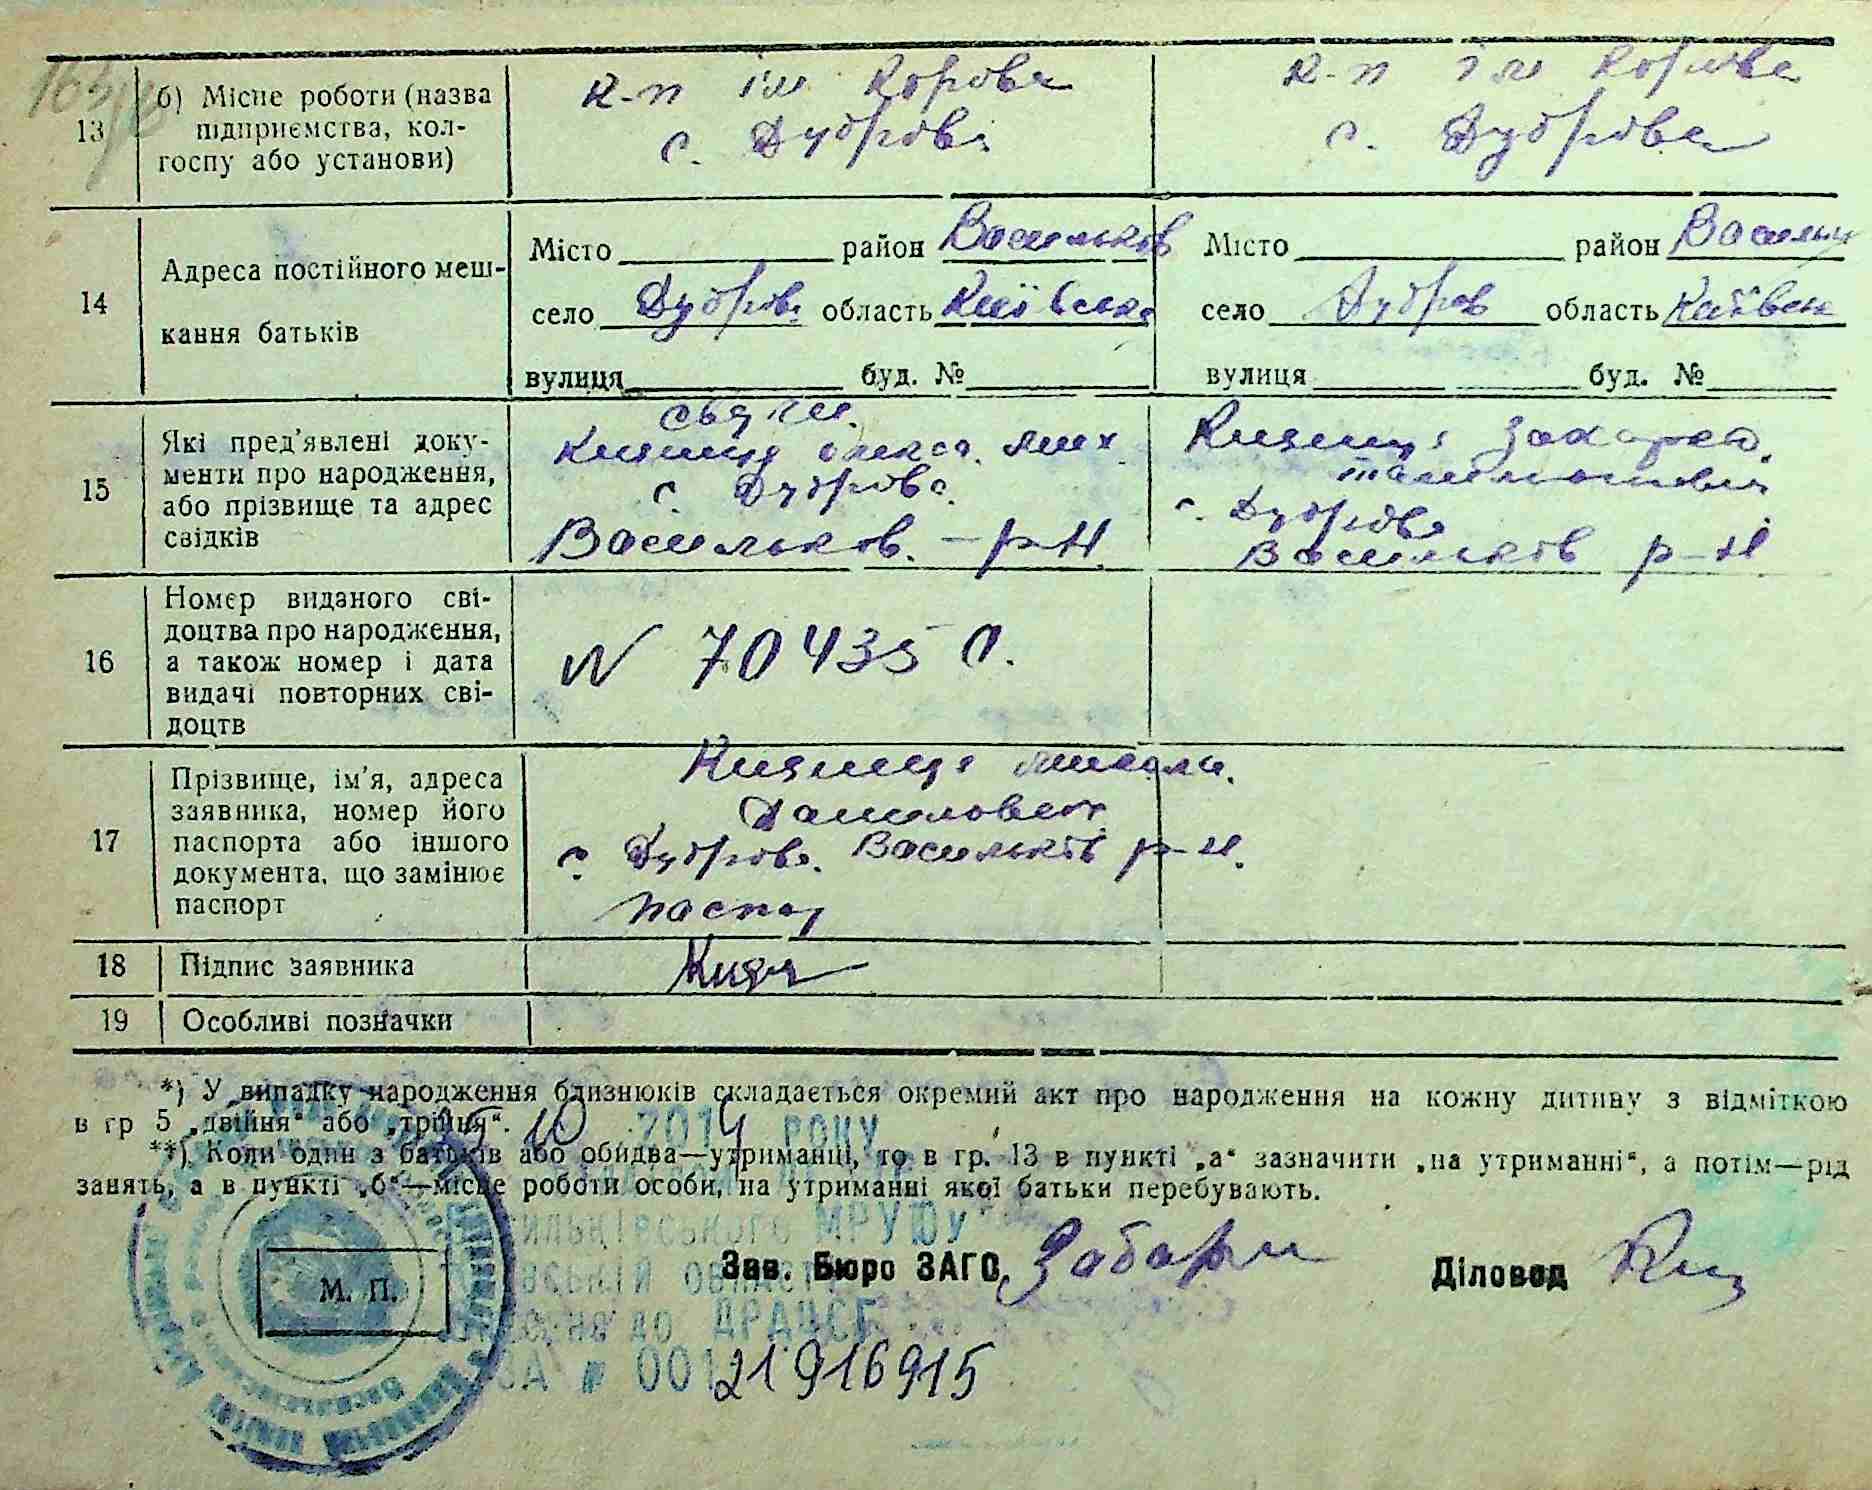 13 б) Місце роботи (назва
підприємства, кол-
госпу або установи)
к-п ім Кірова
с. Дуброва
к-п ім Кірова
с. Дуброва
14 Адреса постійного меш-
кання батьків
Місто район Васильков
село Дуброва область Київська
вулиця буд. №
Місто район Васильк
село Дубров область Київськ
вулиця буд. №
15 Які пред'явлені доку-
менти про народження,
або прізвище та адрес
свідків
свідки.
Кияниця Олекса. Мих.
с. Дуброва.
Васильков. - р-н.
Кияниця Захарей
с. Дуброва
Васильков р-н
16 Номер виданого сві-
доцтва про народження,
а також номер і дата
видачі повторних сві-
доцтв
N 70435 С.
17 Прізвище, ім'я, адреса
заявника, номер його
паспорта або іншого
документа, що замінює
паспорт
Кияниця Микола.
Данилович
с. Дуброва. Васильків р-н.
паспор
18 Підпис заявника
19 Особливі позначки
*) У випадку народження близнюків складається окремий акт про народження на кожну дитину з відміткою
в гр 5 „двійня“ або „трійня“.
10 2014 РОКУ
**) Коли один з батьків або обидва—утриманці, то в гр. 13 в пункті „а“ зазначити „на утриманні“, а потім—рід
занять, а в пункті „б“—місце роботи особи, на утриманні якої батьки перебувають.
Васильківського МРУЮ
Зав. Бюро ЗАГС
Діловод
М. П.
до ДРАЦСГ
ЗА № 00121916915